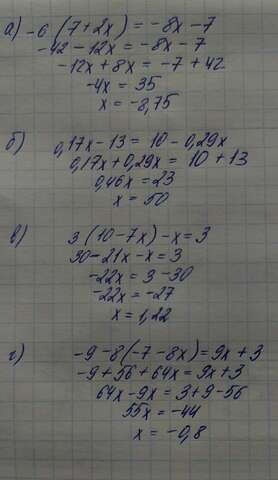 а) -6 (7 + 2x) = -8x - 7
-42 - 12x = -8x - 7
-12x + 8x = -7 + 42
-4x = 35
x = -8,75
б) 0,17x - 13 = 10 - 0,29x
0,17x + 0,29x = 10 + 13
0,46x = 23
x = 50
в) 3 (10 - 7x) - x = 3
30 - 21x - x = 3
-22x = 3 - 30
-22x = -27
x = 1,22
г) -9 - 8(-7 - 8x) = 9x + 3
-9 + 56 + 64x = 9x + 3
64x - 9x = 3 + 9 - 56
55x = -44
x = -0,8